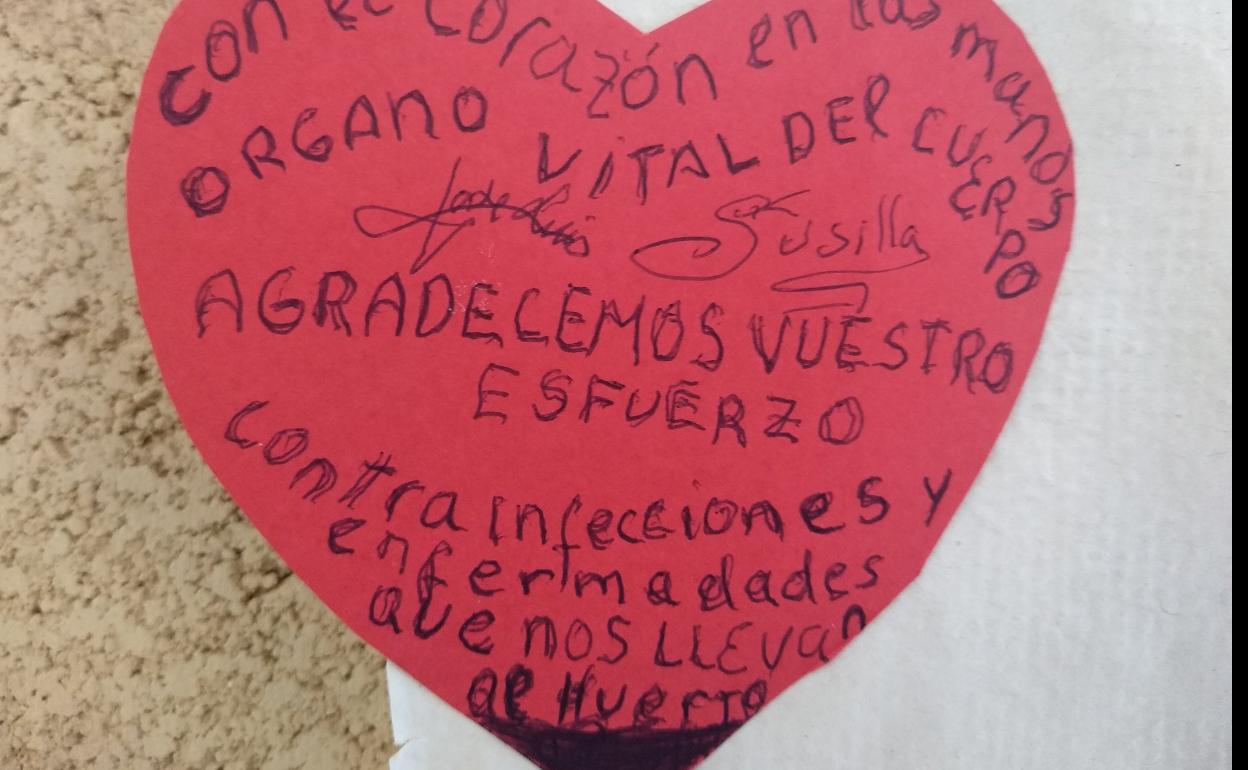 con el corazón en las manos
ORGANO VITAL DEL CUERPO
Susilla
AGRADECEMOS VUESTRO
ESFUERZO
contra infecciones y
enfermadades
que nos LLEvan
al Huerto